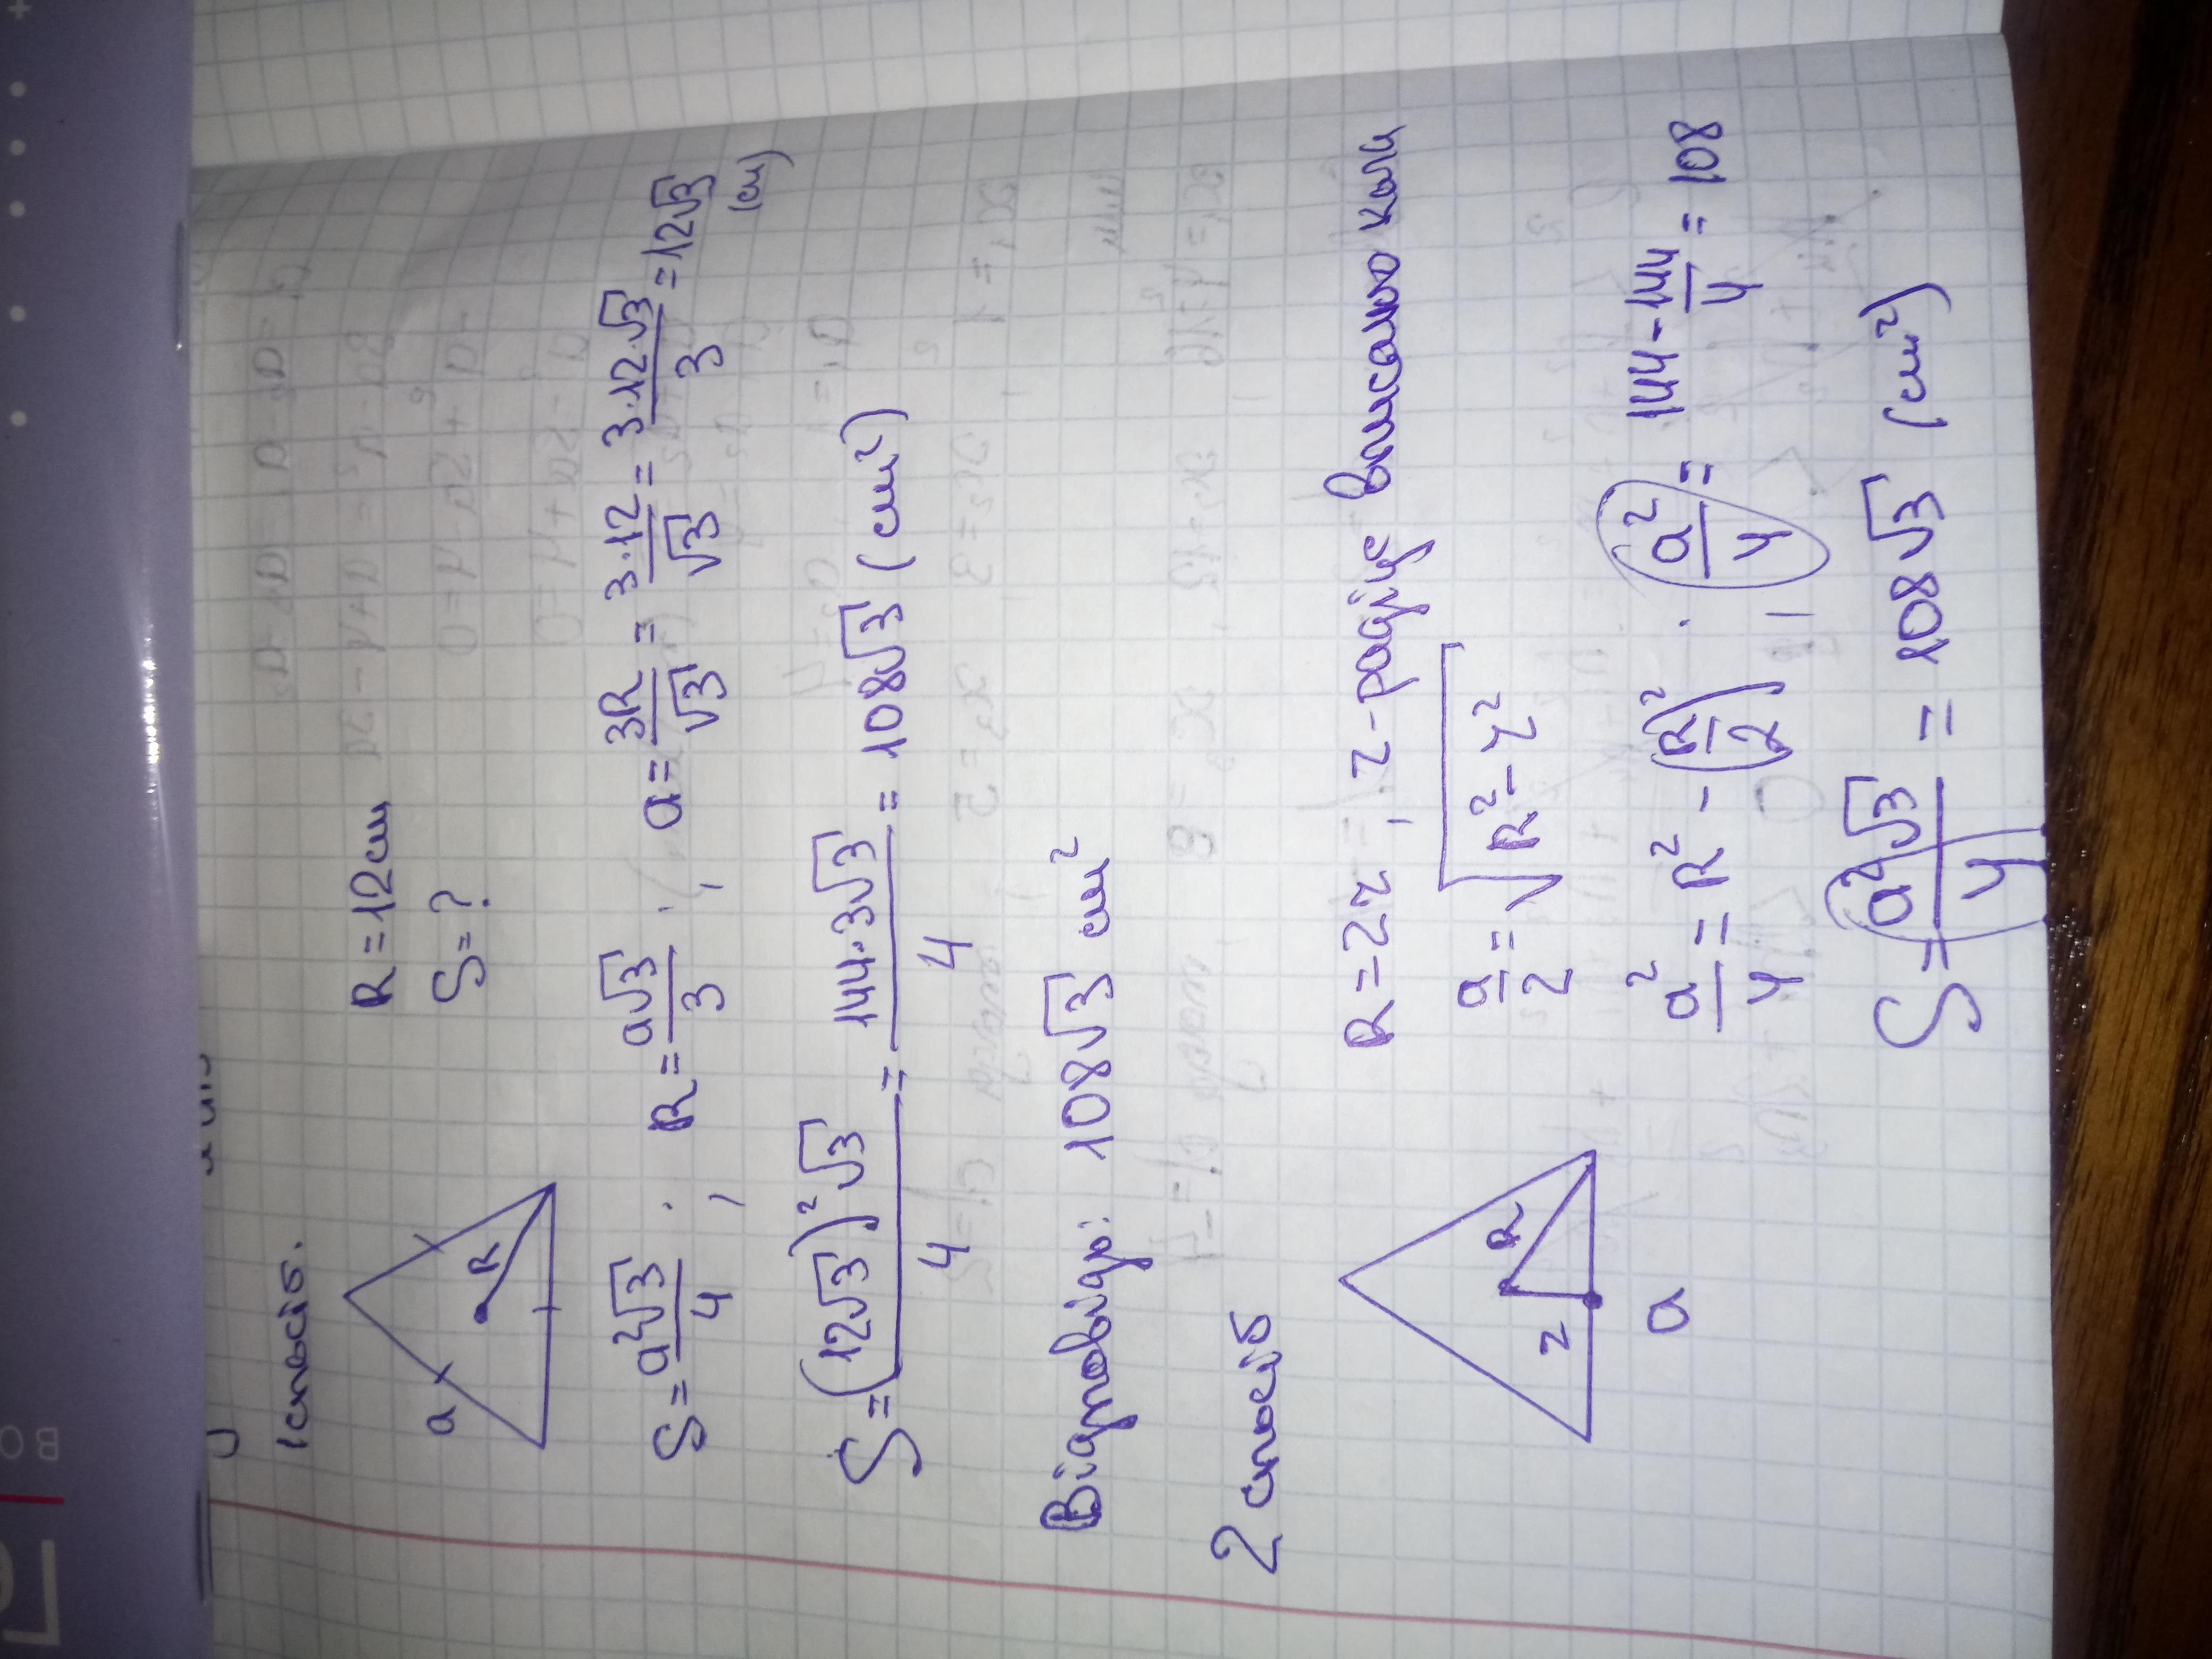 1 спосіб.
R = 12 см
S = ?
a
R
S = a²√3/4 ; R = a√3/3 ; a = 3R/√3 = 3·12/√3 = 3·12·√3/3 = 12√3 (см)
S = (12√3)²√3/4 = 144·3√3/4 = 108√3 (см²)
Відповідь: 108√3 см²
2 спосіб
R = 2r, r - радіус вписаного кола
R
r
a
a/2 = √(R² - r²)
a²/4 = R² - (R/2)² ; a²/4 = 144 - 144/4 = 108
S = a²√3/4 = 108√3 (см²)